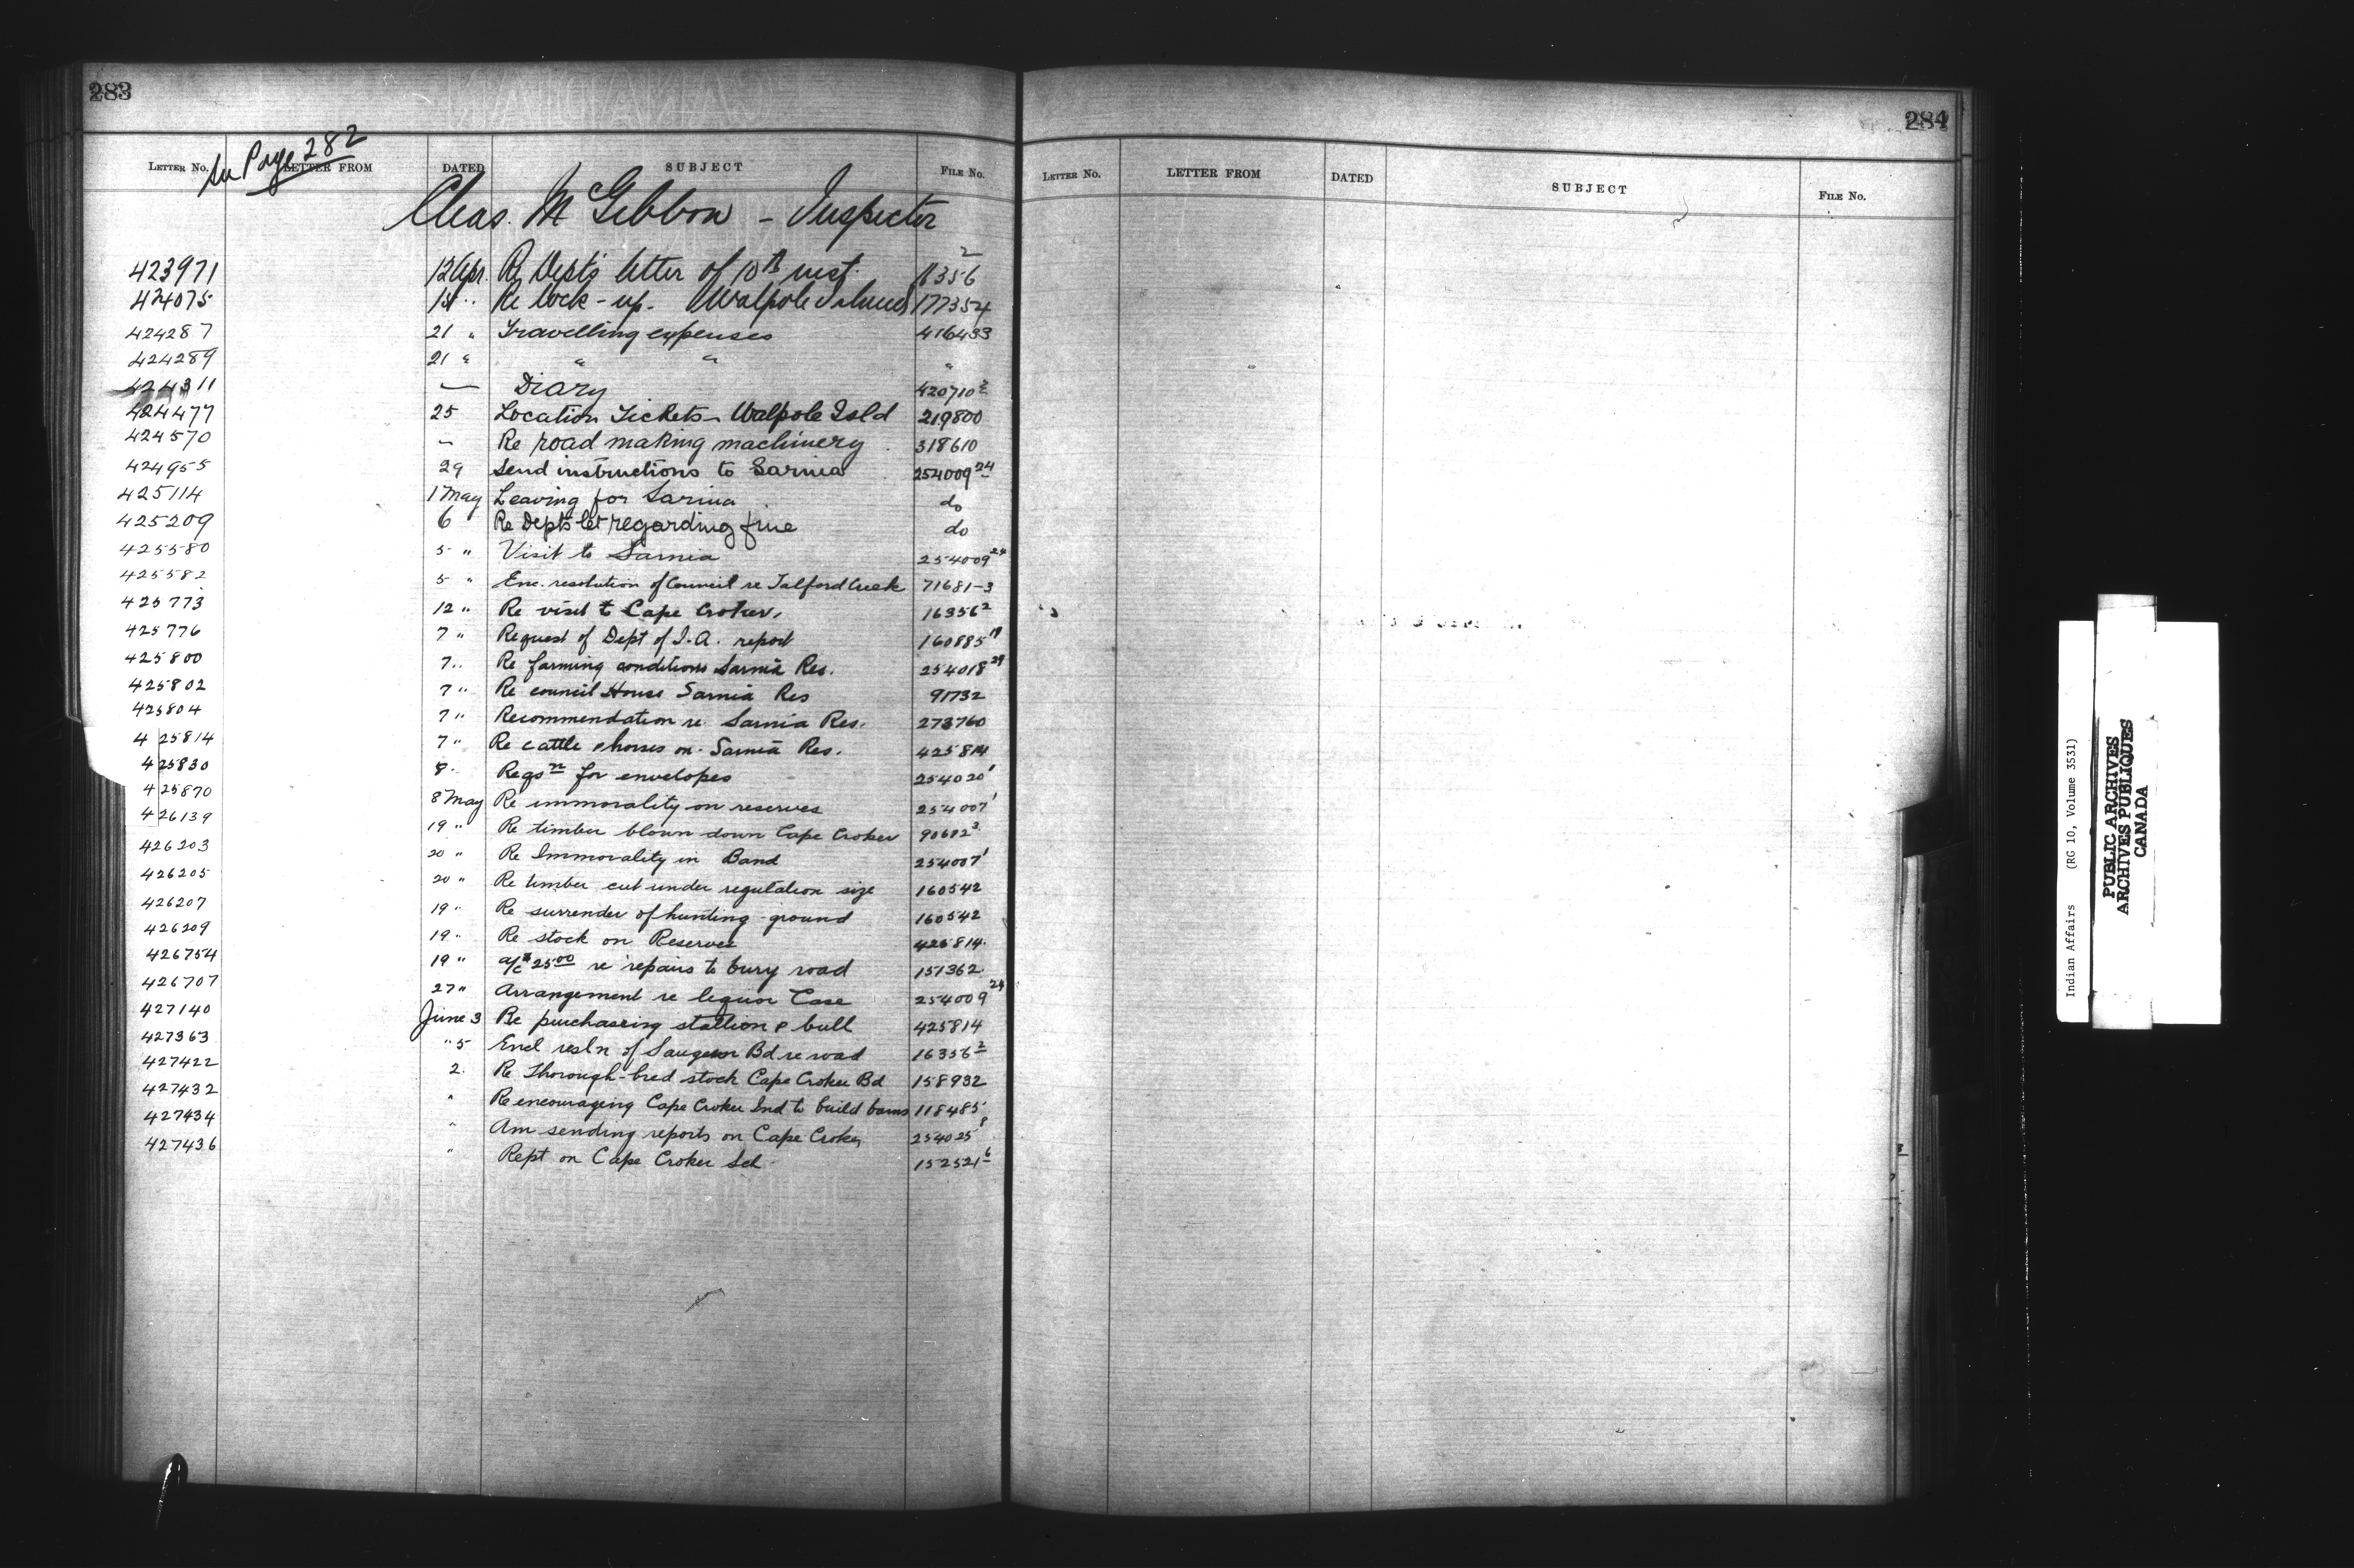 283
See Page 282
LETTER NO. LETTER FROM DATED SUBJECT FILE NO.
Chas. McGibbon - Inspector
423971 12 Apr. Re Dept's letter of 10th inst. 16356 2
424075 15 " Re lock-up. Walpole Island 177354
424287 21 " Travelling expenses 416433
424289 21 " " " "
424311 — Diary 420710 2
424477 25 Location Tickets - Walpole Isld 219800
424570 " Re road making machinery 318610
424955 29 Send instructions to Sarnia 254009 24
425114 1 May Leaving for Sarnia do
425209 6 Re Dept's let regarding fine do
425580 5 " Visit to Sarnia 254009 24
425582 5 " Enc. resolution of Council re Talford Creek 71681-3
425773 12 " Re visit to Cape Croker, 16356 2
425776 7 " Request of Dept of I.A. report 160885 19
425800 7 " Re farming conditions Sarnia Res. 254018 29
425802 7 " Re council House Sarnia Res 91732
425804 7 " Recommendation re Sarnia Res. 273760
425814 7 " Re cattle & horses on Sarnia Res. 425814
425830 8 " Reqsn for envelopes 254020 1
425870 8 May Re immorality on reserves 254007 1
426139 19 " Re timber blown down Cape Croker 90682 3
426203 20 " Re Immorality in Band 254007 1
426205 20 " Re timber cut under regulation size 160542
426207 19 " Re surrender of hunting-ground 160542
426209 19 " Re stock on Reserves 425814
426754 19 " a/c $25.00 re repairs to bury road 151362
426707 27 " Arrangement re liquor Case 254009 24
427140 June 3 Re purchasing stallion & bull 425814
427363 " 5 Encl resln of Saugeen Bd re road 16356 2
427422 2 Re Thorough-bred stock Cape Croker Bd 158932
427432 " Re encouraging Cape Croker Ind to build barns 118485
427434 " Am sending reports on Cape Croker 254025 8
427436 " Rept on Cape Croker Sch 152521 6
284
LETTER NO. LETTER FROM DATED SUBJECT FILE NO.
Indian Affairs (RG 10, Volume 3531)
PUBLIC ARCHIVES
ARCHIVES PUBLIQUES
CANADA